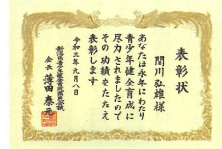 表彰状
間川弘雄様
あなたは永年にわたり
青少年健全育成に
尽力されましたので
その功績をたたえ
表彰します
令和三年九月八日
会長 薄田泰元